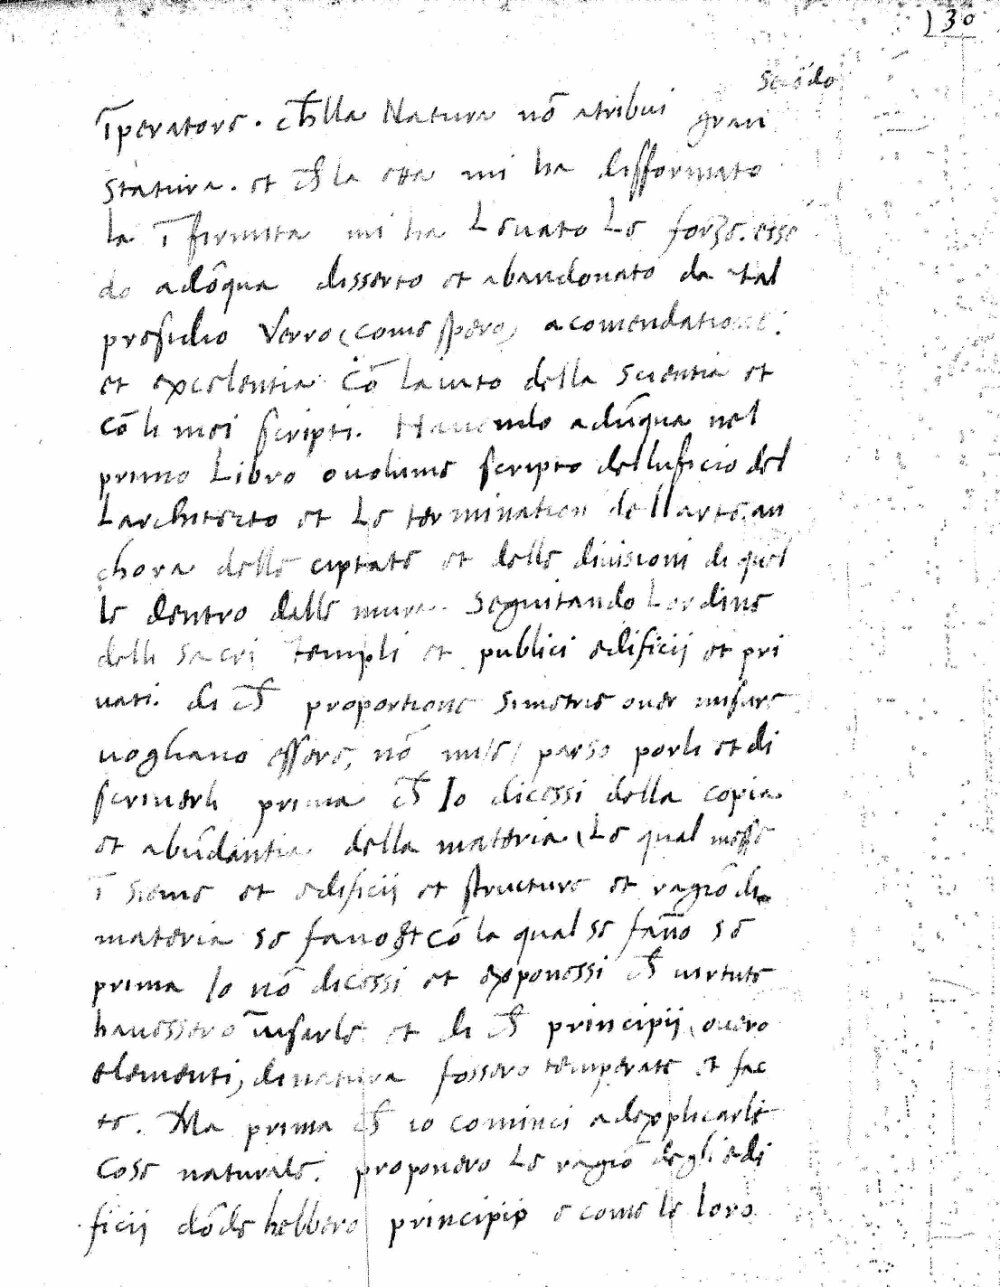 130
Secōdo
Īperatore. ch̄lla Natura nō atribui gran
statura. et ch̄ la eta mi ha disformato
la īfirmita mi ha Levato Le forze. esse
do adōqua disserto et abandonato da tal
presidio Verro (come spero) acomendatione.
et excelentia Cō laiuto della scientia et
cō li mei scripti. Havendo adūqua nel
primo Libro o volume scripto delluficio del
Larchitecto et Le termination dellarte, an
chora delle ciptate et delle divisioni di quel
le dentro dalle mura. Seguitando Lordine
delli sacri templi et publici edificii et pri
vati. di ch̄ proportione simetrie over misure
vogliano essere, nō mise parso porli et di
scriverli prima ch̄ Io dicessi della copia
et abūdantia della materia (Le qual messe
ī sieme et edificii et structure et ragiō di
materia se fano et cō la qual se fāno se
prima Io nō dicessi et exponessi ch̄ virtute
havessero ī usarle et di ch̄ principii, overo
elementi, di natura fossero temperate et fac
te. Ma prima ch̄ io cominci ad explicar le
Cose naturale. proponero Le ragiō degli edi
ficii dōde hebbero principio e come le loro